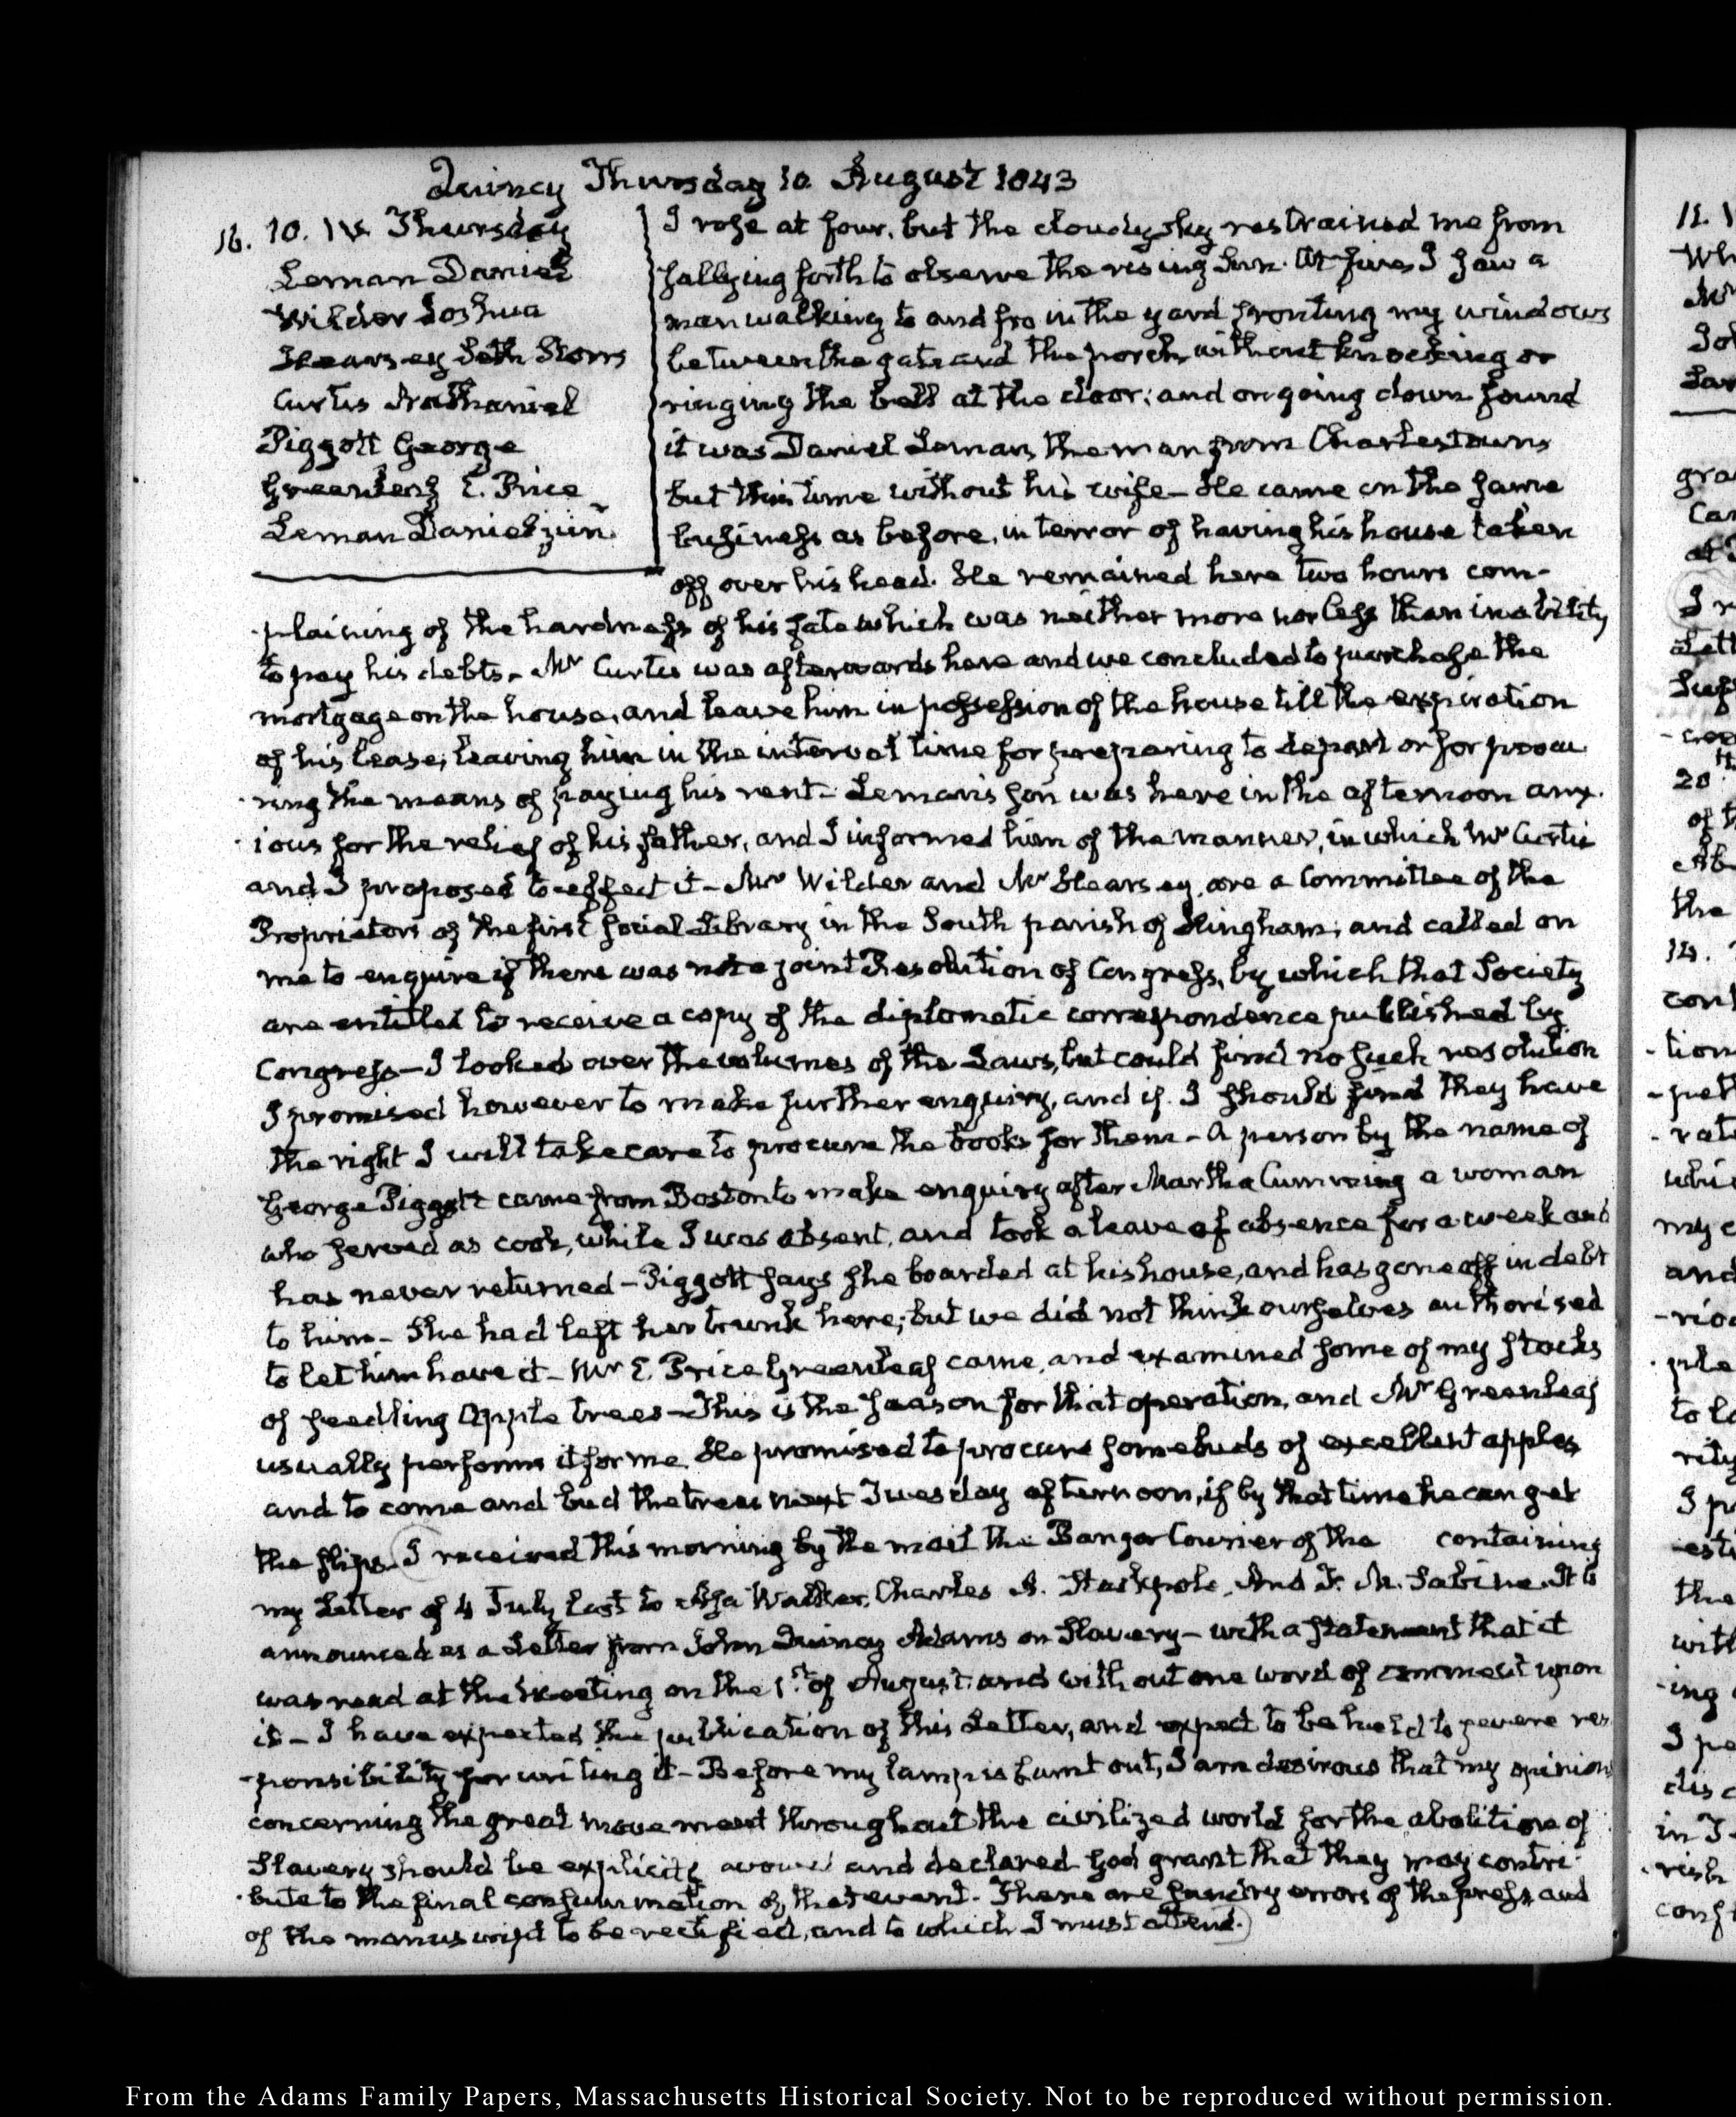 Quincy Thursday 10. August 1843
16. 10. IV. Thursday
Leman Daniel
Wilder Joshua
Hearsey Seth Storrs
Curtis Nathaniel
Piggott George
Greenleaf E. Price
Leman Daniel jun.
I rose at four, but the cloudy sky restrained me from
sallying forth to observe the rising Sun. At five I saw a
man walking to and fro in the yard fronting my windows
between the gate and the porch, without knocking or
ringing the bell at the door; and on going down found
it was Daniel Leman, the man from Charlestown
but this time without his wife— He came on the same
business as before, in terror of having his house taken
off over his head. He remained here two hours com-
-plaining of the hardness of his fate which was neither more nor less than inability
to pay his debts. Mr Curtis was afterwards here and we concluded to purchase the
mortgage on the house, and leave him in possession of the house till the expiration
of his lease; leaving him in the interval time for preparing to depart or for procu
-ring the means of paying his rent— Leman's son was here in the afternoon anx-
-ious for the relief of his father, and I informed him of the manner, in which Mr Curtis
and I proposed to effect it— Mr Wilder and Mr Hearsey, are a Committee of the
Proprietors of the first social Library in the South parish of Hingham; and called on
me to enquire if there was not a joint Resolution of Congress, by which that Society
are entitled to receive a copy of the diplomatic correspondence published by
Congress— I looked over the volumes of the Laws, but could find no such resolution
I promised however to make further enquiry, and if I should find they have
the right I will take care to procure the books for them— A person by the name of
George Piggott came from Boston to make enquiry after Martha Cumming a woman
who served as cook, while I was absent, and took a leave of absence for a week and
has never returned— Piggott says she boarded at his house, and has gone off in debt
to him— She had left her trunk here; but we did not think ourselves authorised
to let him have it— Mr E. Price Greenleaf came, and examined some of my stocks
of seedling Apple trees— This is the season for that operation, and Mr Greenleaf
usually performs it for me. He promised to procure some buds of excellent apples
and to come and bud the trees next Tuesday afternoon, if by that time he can get
the slips. I received this morning by the mail the Bangor Courier of the containing
my Letter of 4 July last to Asa Walker, Charles A. Stackpole, And F. M. Sabine. It is
announced as a Letter from John Quincy Adams on Slavery— with a statement that it
was read at the meeting on the 1st. of August and without one word of comment upon
it— I have expected the publication of this Letter, and expect to be held to severe res
-ponsibility for writing it— Before my lamp is burnt out, I am desirous that my opinions
concerning the great movement throughout the civilized world for the abolition of
Slavery should be explicitly avowed and declared God grant that they may contri-
-bute to the final consummation of that event. There are sundry errors of the press, and
of the manuscript to be rectified, and to which I must attend.
From the Adams Family Papers, Massachusetts Historical Society. Not to be reproduced without permission.